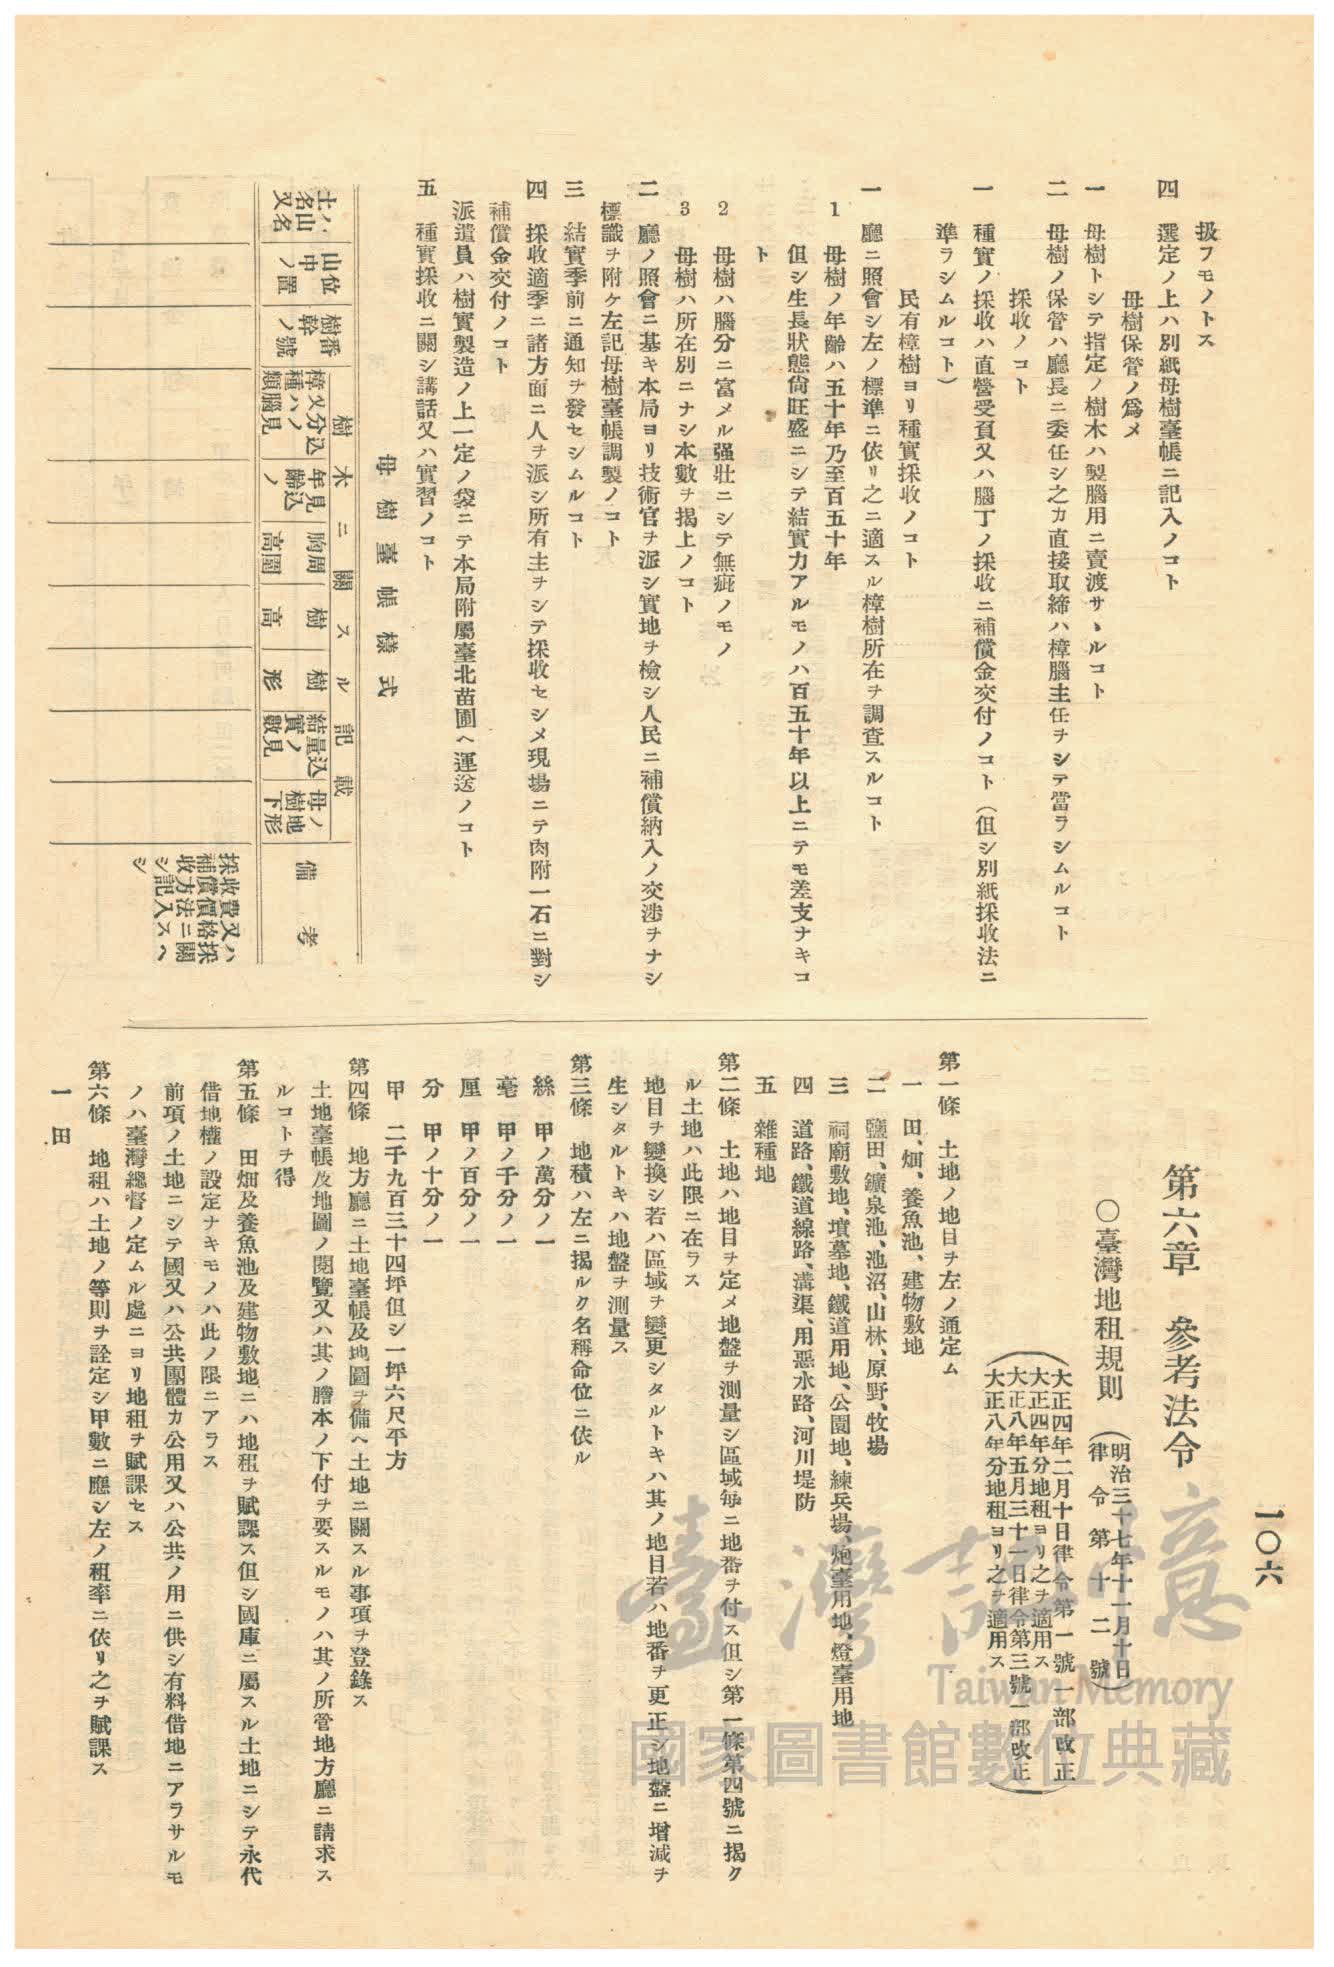 一〇六
扱フモノトス
四　選定ノ上ハ別紙母樹臺帳ニ記入ノコト
母樹保管ノ爲メ
一　母樹トシテ指定ノ樹木ハ製腦用ニ賣渡サヽルコト
二　母樹ノ保管ハ廳長ニ委任シ之カ直接取締ハ樟腦主任ヲシテ當ラシムルコト
採收ノコト
一　種實ノ採收ハ直營受負又ハ腦丁ノ採收ニ補償金交付ノコト（但シ別紙採收法ニ
準ラシムルコト）
民有樟樹ヨリ種實採收ノコト
一　廳ニ照會シ左ノ標準ニ依リ之ニ適スル樟樹所在ヲ調査スルコト
1　母樹ノ年齡ハ五十年乃至百五十年
但シ生長狀態尙旺盛ニシテ結實力アルモノハ百五十年以上ニテモ差支ナキコ
ト
2　母樹ハ腦分ニ富メル强壯ニシテ無疵ノモノ
3　母樹ハ所在別ニナシ本數ヲ揭上ノコト
二　廳ノ照會ニ基キ本局ヨリ技術官ヲ派シ實地ヲ檢シ人民ニ補償納入ノ交涉ヲナシ
標識ヲ附ケ左記母樹臺帳調製ノコト
三　結實季前ニ通知ヲ發セシムルコト
四　採收適季ニ諸方面ニ人ヲ派シ所有主ヲシテ採收セシメ現場ニテ肉附一石ニ對シ
補償金交付ノコト
派遣員ハ樹實製造ノ上一定ノ袋ニテ本局附屬臺北苗圃ヘ運送ノコト
五　種實採收ニ關シ講話又ハ實習ノコト
母樹臺帳樣式
土名又ハ山名
山中ノ位置
樹幹ノ番號
樹木ニ關スル記載
樟種類又ハ腦分ノ見込
年齡ノ見込
胸高周圍
樹高
樹形
結實數量ノ見込
母樹下ノ地形
備考
採收費又ハ
補償價格採
收方法ニ關
シ記入スヘ
シ
第六章　參考法令
〇臺灣地租規則（明治三十七年十一月十日
律令第十二號）
（大正四年二月十日律令第一號一部改正
大正四年分地租ヨリ之ヲ適用ス
大正八年五月三十一日律令第三號一部改正
大正八年分地租ヨリ之ヲ適用ス）
第一條　土地ノ地目ヲ左ノ通定ム
一　田、畑、養魚池、建物敷地
二　鹽田、鑛泉池、池沼、山林、原野、牧場
三　祠廟敷地、墳墓地、鐵道用地、公園地、練兵場、炮臺用地、燈臺用地
四　道路、鐵道線路、溝渠、用惡水路、河川堤防
五　雜種地
第二條　土地ハ地目ヲ定メ地盤ヲ測量シ區域每ニ地番ヲ付ス但シ第一條第四號ニ揭ク
ル土地ハ此限ニ在ラス
地目ヲ變換シ若ハ區域ヲ變更シタルトキハ其ノ地目若ハ地番ヲ更正シ地盤ニ增減ヲ
生シタルトキハ地盤ヲ測量ス
第三條　地積ハ左ニ揭ルク名稱命位ニ依ル
絲　甲ノ萬分ノ一
毫　甲ノ千分ノ一
厘　甲ノ百分ノ一
分　甲ノ十分ノ一
甲　二千九百三十四坪但シ一坪六尺平方
第四條　地方廳ニ土地臺帳及地圖ヲ備ヘ土地ニ關スル事項ヲ登錄ス
土地臺帳及地圖ノ閱覽又ハ其ノ謄本ノ下付ヲ要スルモノハ其ノ所管地方廳ニ請求ス
ルコトヲ得
第五條　田畑及養魚池及建物敷地ニハ地租ヲ賦課ス但シ國庫ニ屬スル土地ニシテ永代
借地權ノ設定ナキモノハ此ノ限ニアラス
前項ノ土地ニシテ國又ハ公共團體カ公用又ハ公共ノ用ニ供シ有料借地ニアラサルモ
ノハ臺灣總督ノ定ムル處ニヨリ地租ヲ賦課セス
第六條　地租ハ土地ノ等則ヲ詮定シ甲數ニ應シ左ノ租率ニ依リ之ヲ賦課ス
一　田
臺灣記憶
Taiwan Memory
國家圖書館數位典藏